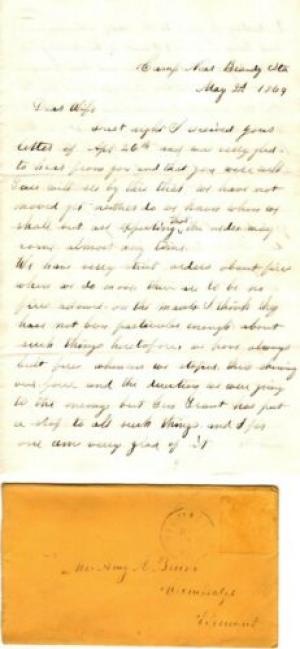 Camp Near Brandy Sta
May 2d 1864
Dear Wife
Last night I received your
letter of Apr 26th and was very glad
to hear from you and that you were well
I am well see by this that we have not
moved yet neither do we know when we
shall but are expecting that the order may
come almost any time.
We have very strict orders about fires
when we do move there is to be no
fires allowed on the march I think they
have not been particular enough about
such things heretofore, we have always
built fires whenever we stoped this showing
our force and the direction we were going
to the enemy but Gen Grant has put
a stop to all such things and I for
one am very glad of it
Mrs Amy E.
Vermont